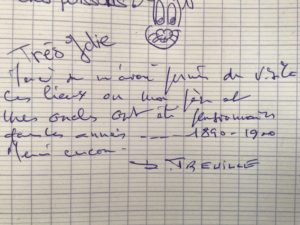 des poissons
Très Jolie
Merci de m'avoir permis de visiter
ces lieux ou mon père et
mes oncles ont été pensionnaires
dans les années ---- 1890-1900
Merci encore -
→ TREVILLE